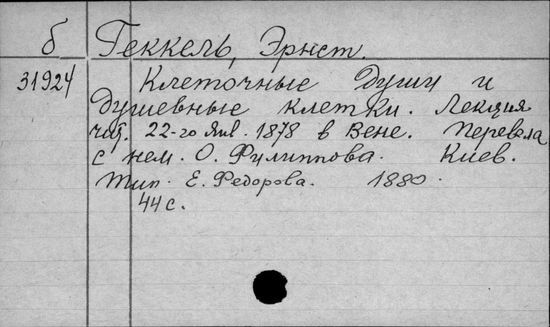 б Геккель, Эрнст.
31924 Клеточные души и
душевные клетки. Лекция
чит. 22-го Янв. 1878 в Вене. Перевела
с нем. О. Филиппова. Киев.
Тип. Е. Федорова. 1880.
44 с.